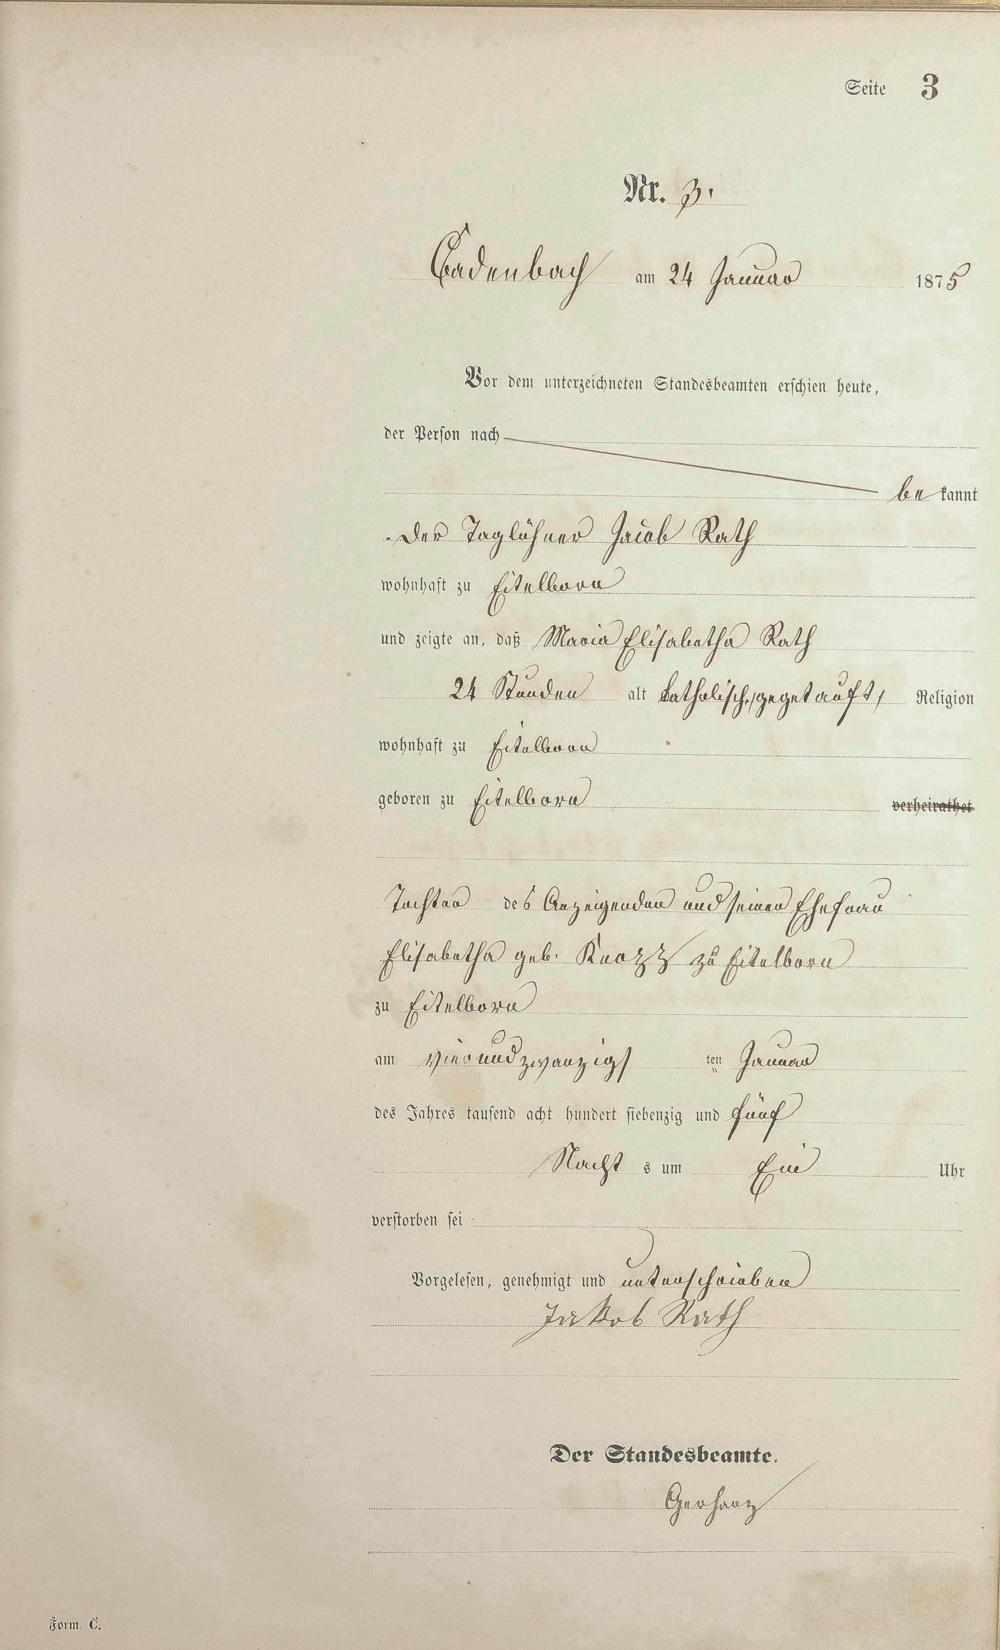 Seite 3
Nr. 3.
Cadenbach am 24 Januar 1875
Vor dem unterzeichneten Standesbeamten erschien heute,
der Person nach
be kannt
der Taglöhner Jacob Rath
wohnhaft zu Eitelborn
und zeigte an, daß Maria Elisabetha Rath
24 Stunden alt katholisch, gegetauft, Religion
wohnhaft zu Eitelborn
geboren zu Eitelborn verheirathet
Tochter des Anzeigenden und seiner Ehefrau
Elisabetha geb. zu Eitelborn
zu Eitelborn
am vierundzwanzigs ten Januar
des Jahres tausend acht hundert siebenzig und fünf
Nacht s um Ein Uhr
verstorben sei
Vorgelesen, genehmigt und unterschrieben
Jakob Rath
Der Standesbeamte.
Gerharz
Form. C.